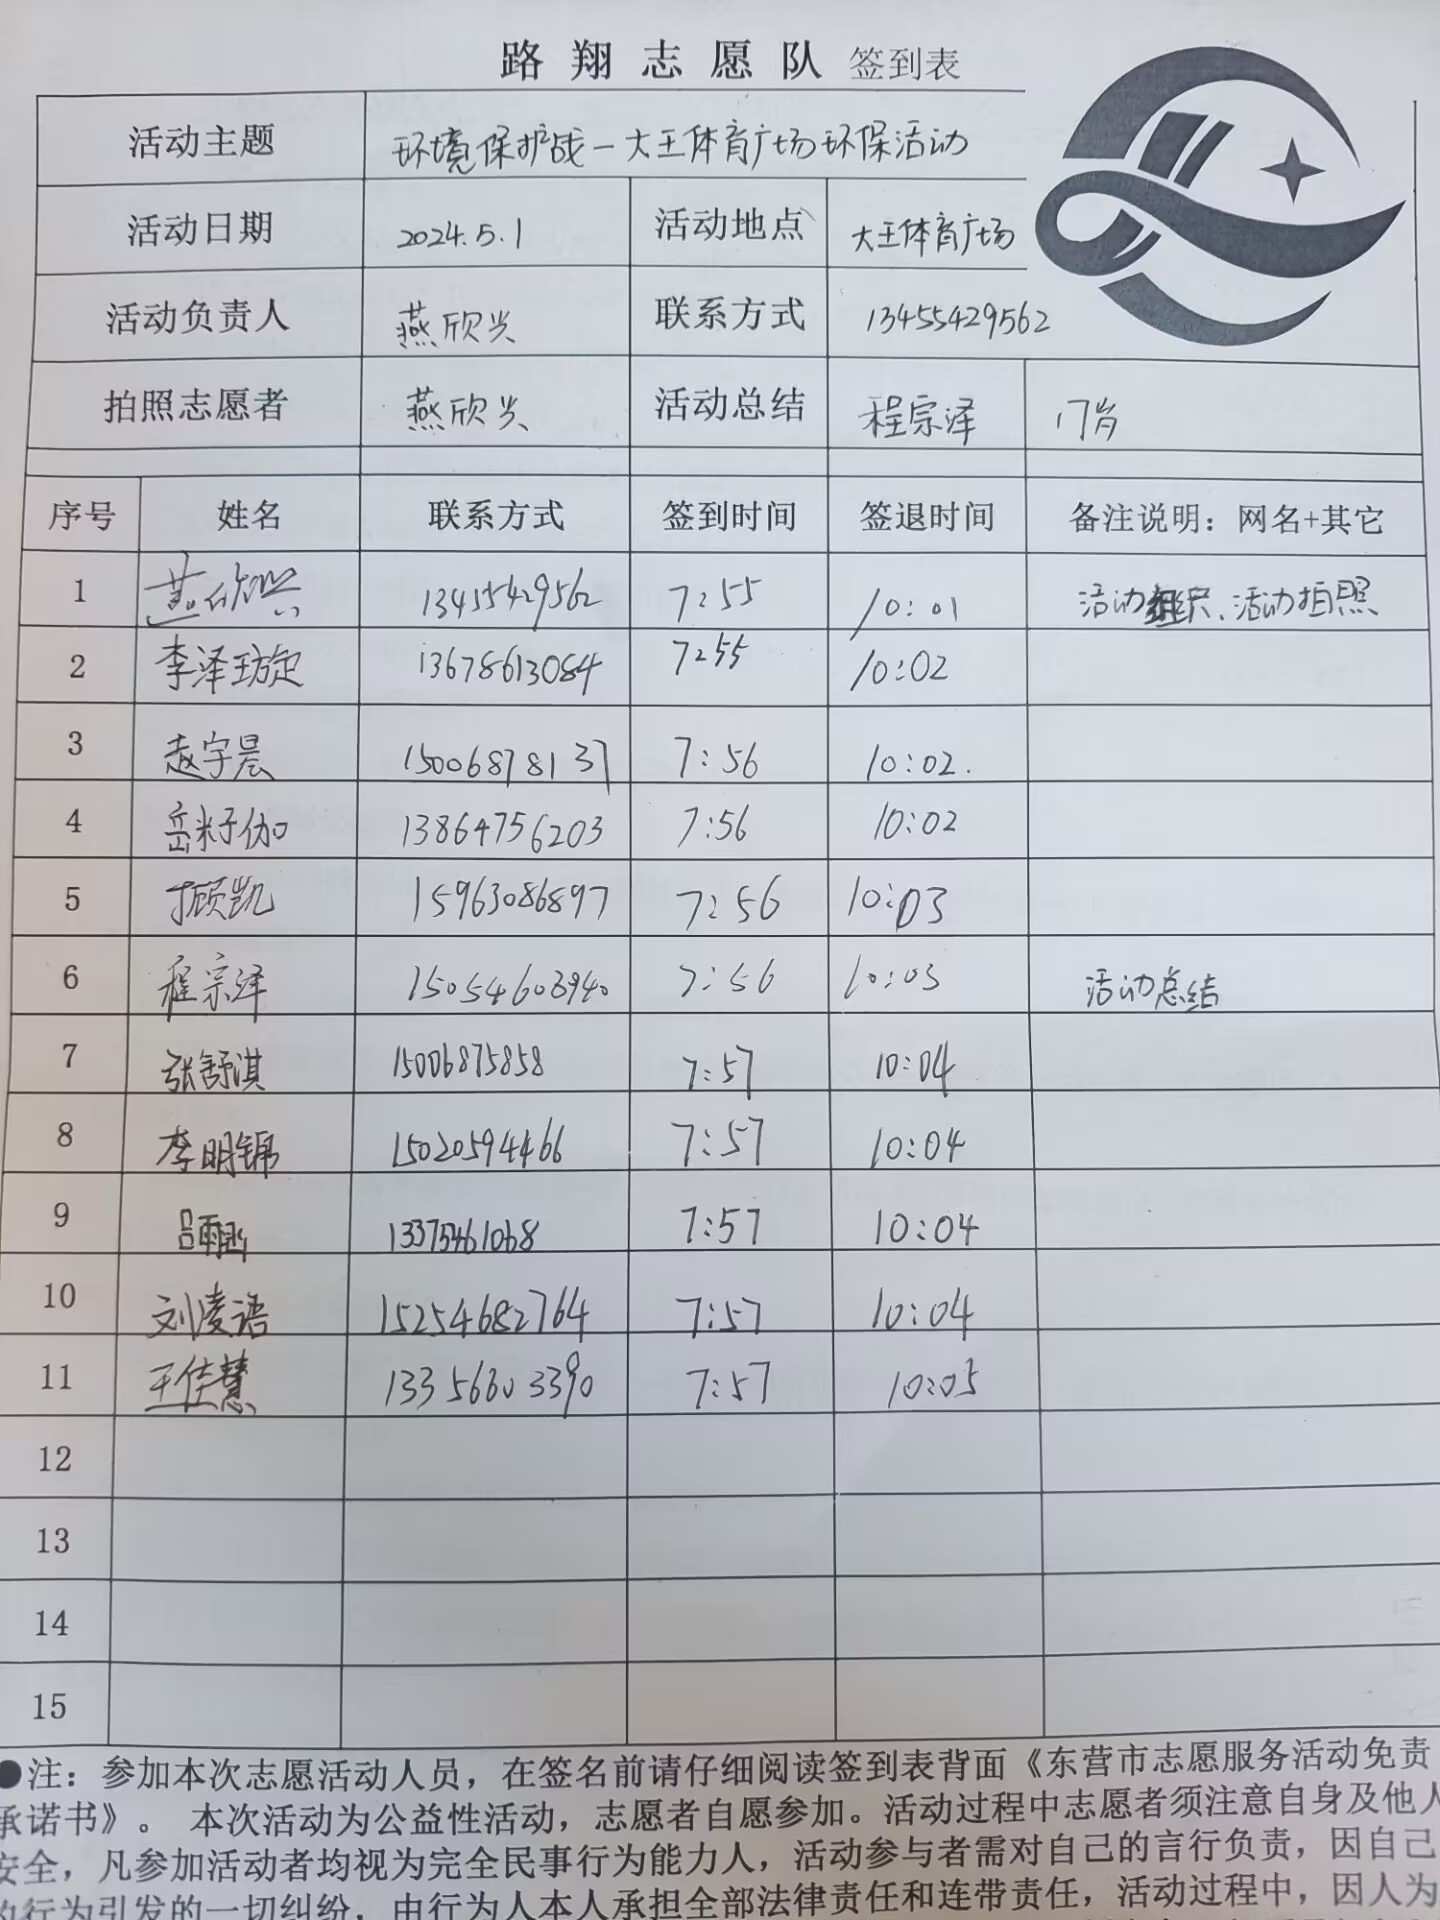 路翔志愿队 签到表
活动主题 环境保护战—大王体育广场环保活动
活动日期 2024.5.1 活动地点 大王体育广场
活动负责人 燕欣兴 联系方式 13455429562
拍照志愿者 燕欣兴 活动总结 程宗泽 17岁
序号 姓名 联系方式 签到时间 签退时间 备注说明：网名+其它
1 燕欣兴 13455429562 7:55 10:01 活动组织、活动拍照
2 李泽 13678613084 7:55 10:02
3 赵宇晨 15006878137 7:56 10:02.
4 岳籽伽 13864756203 7:56 10:02
5 顾凯 15963086897 7:56 10:03
6 程宗泽 15054603940 7:56 10:03 活动总结
7 张舒淇 15006875858 7:57 10:04
8 李明锦 15020594466 7:57 10:04
9 吕雨 13375461068 7:57 10:04
10 刘凌语 15254682764 7:57 10:04
11 王佳慧 13356603390 7:57 10:05
12
13
14
15
●注：参加本次志愿活动人员，在签名前请仔细阅读签到表背面《东营市志愿服务活动免责
承诺书》。 本次活动为公益性活动，志愿者自愿参加。活动过程中志愿者须注意自身及他人
安全，凡参加活动者均视为完全民事行为能力人，活动参与者需对自己的言行负责，因自己
的行为引发的一切纠纷，由行为人本人承担全部法律责任和连带责任，活动过程中，因人为